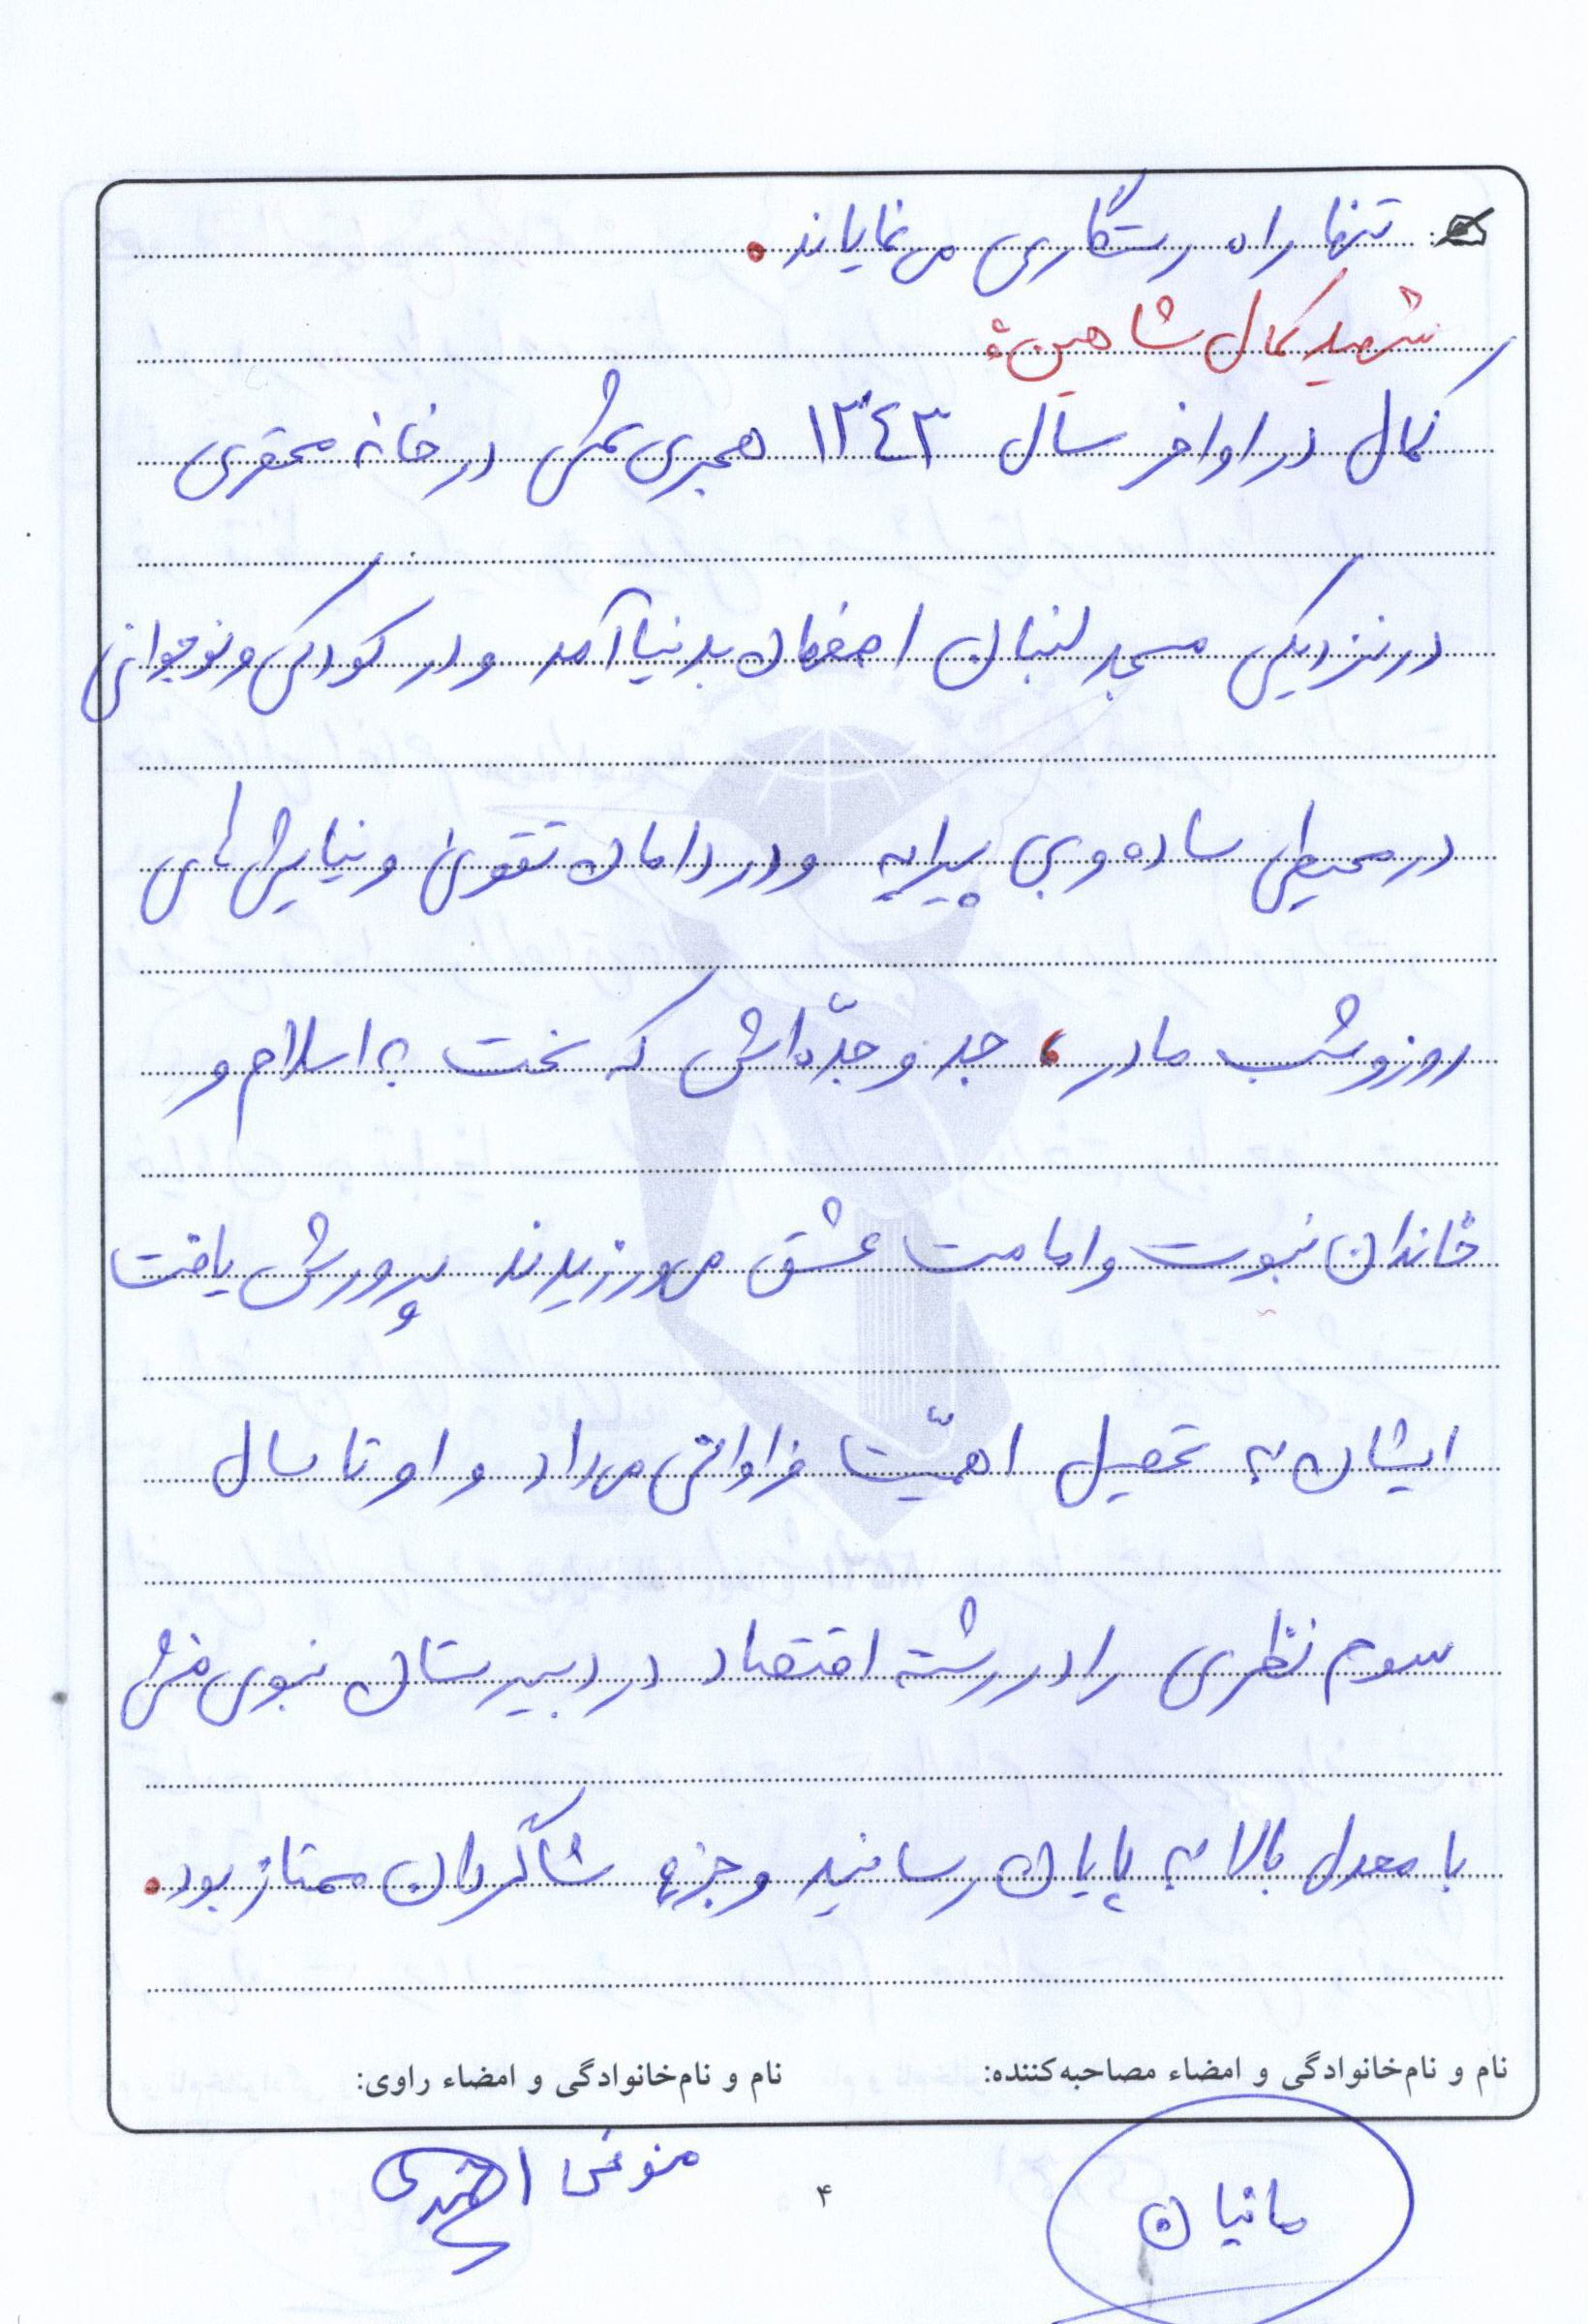 تنها راه رستگاری می‌نمایاند.
شهید کمال شاهین:
کمال در اواخر سال ۱۳۴۳ هجری شمسی در خانه محقری
در نزدیکی مسجد لنبان اصفهان بدنیا آمد و در کودکی و نوجوانی
در محیطی ساده و بی پیرایه و در دامان تقوی و نیایش های
روز و شب مادر، جد و جدّه‌اش که سخت به اسلام و
خاندان نبوت و امامت عشق می‌ورزیدند پرورش یافت
ایشان به تحصیل اهمیّت فراوانی می‌داد و او تا سال
سوم نظری را در رشته اقتصاد در دبیرستان نبوی منش
با معدل بالا به پایان رسانید و جزء شاگردان ممتاز بود.
نام و نام‌خانوادگی و امضاء مصاحبه‌کننده: نام و نام‌خانوادگی و امضاء راوی:
مانیان ۴